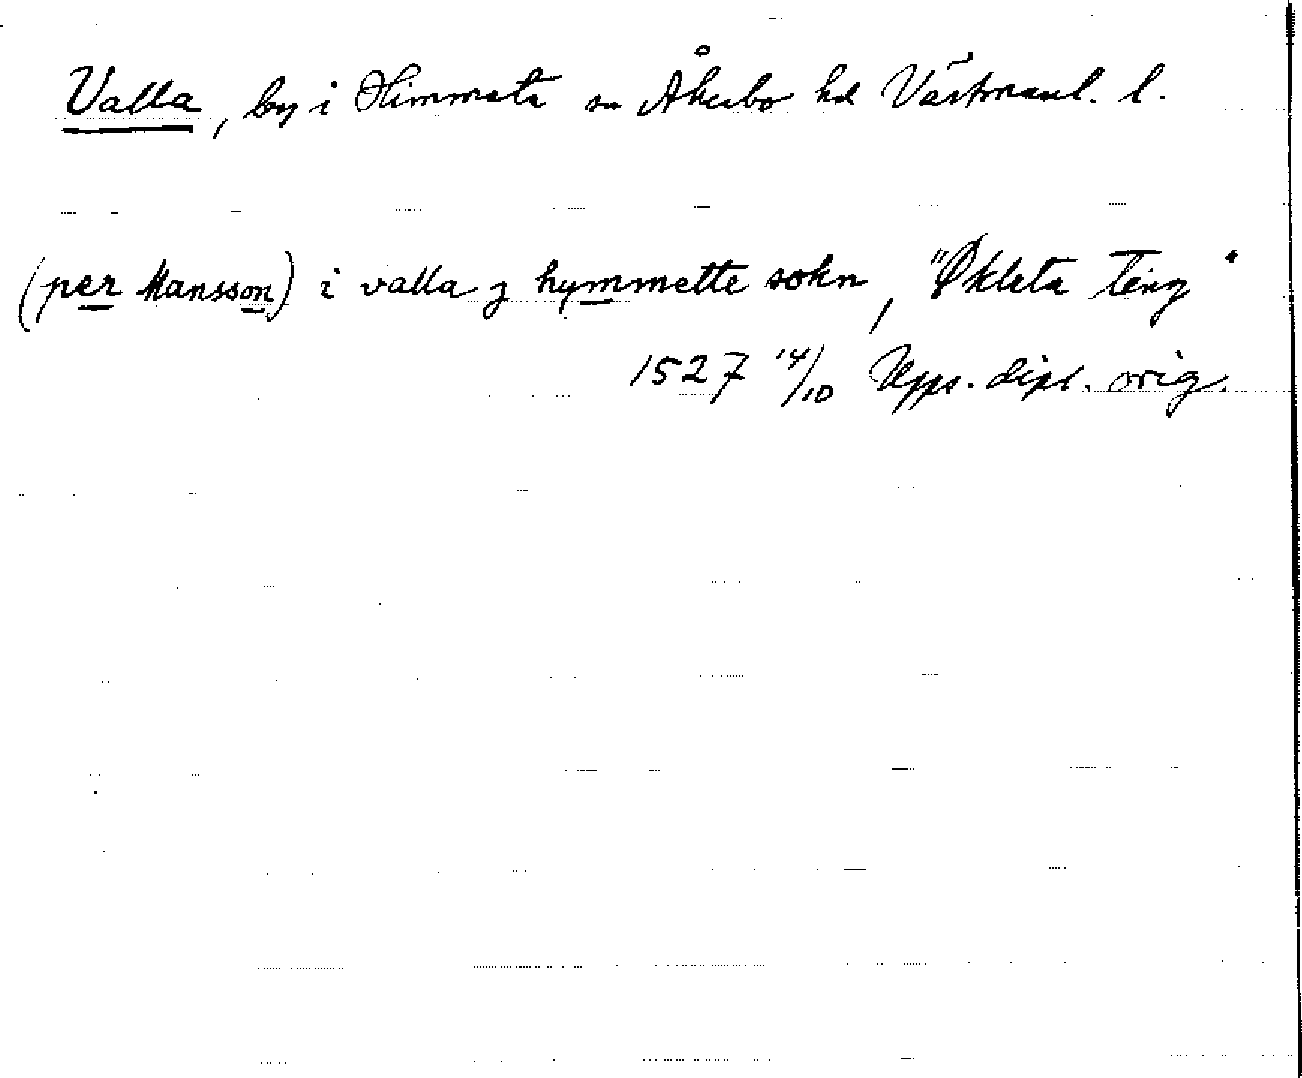 Valla, by i Himmeta sn Åkerbo hd Västmanl. l.
(per Mansson) i valla j hymmette sokn, "Økleta Ting"
1527 14/10 Upps. dipl. orig.